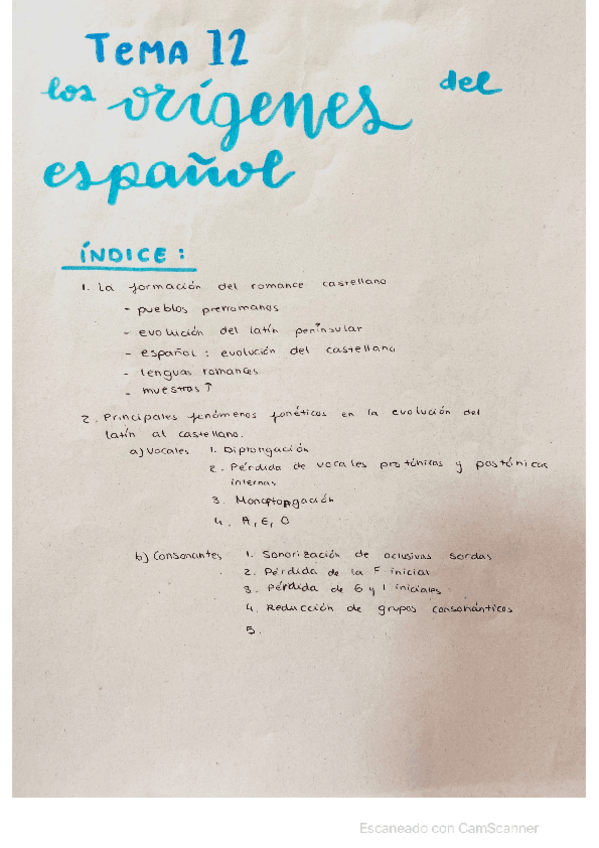 TEMA 12
los orígenes del
español
ÍNDICE :
1. La formación del romance castellano
- pueblos prerromanos
- evolución del latín peninsular
- español : evolución del castellano
- lenguas romances
- muestras ↑
2. Principales fenómenos fonéticos en la evolución del
latín al castellano.
a) Vocales 1. Diptongación
2. Pérdida de vocales protónicas y postónicas
internas
3. Monoptongación
4. A, E, O
b) Consonantes 1. Sonorización de oclusivas sordas
2. Pérdida de la F inicial
3. Pérdida de G y I iniciales
4. Reducción de grupos consonánticos
5.
Escaneado con CamScanner